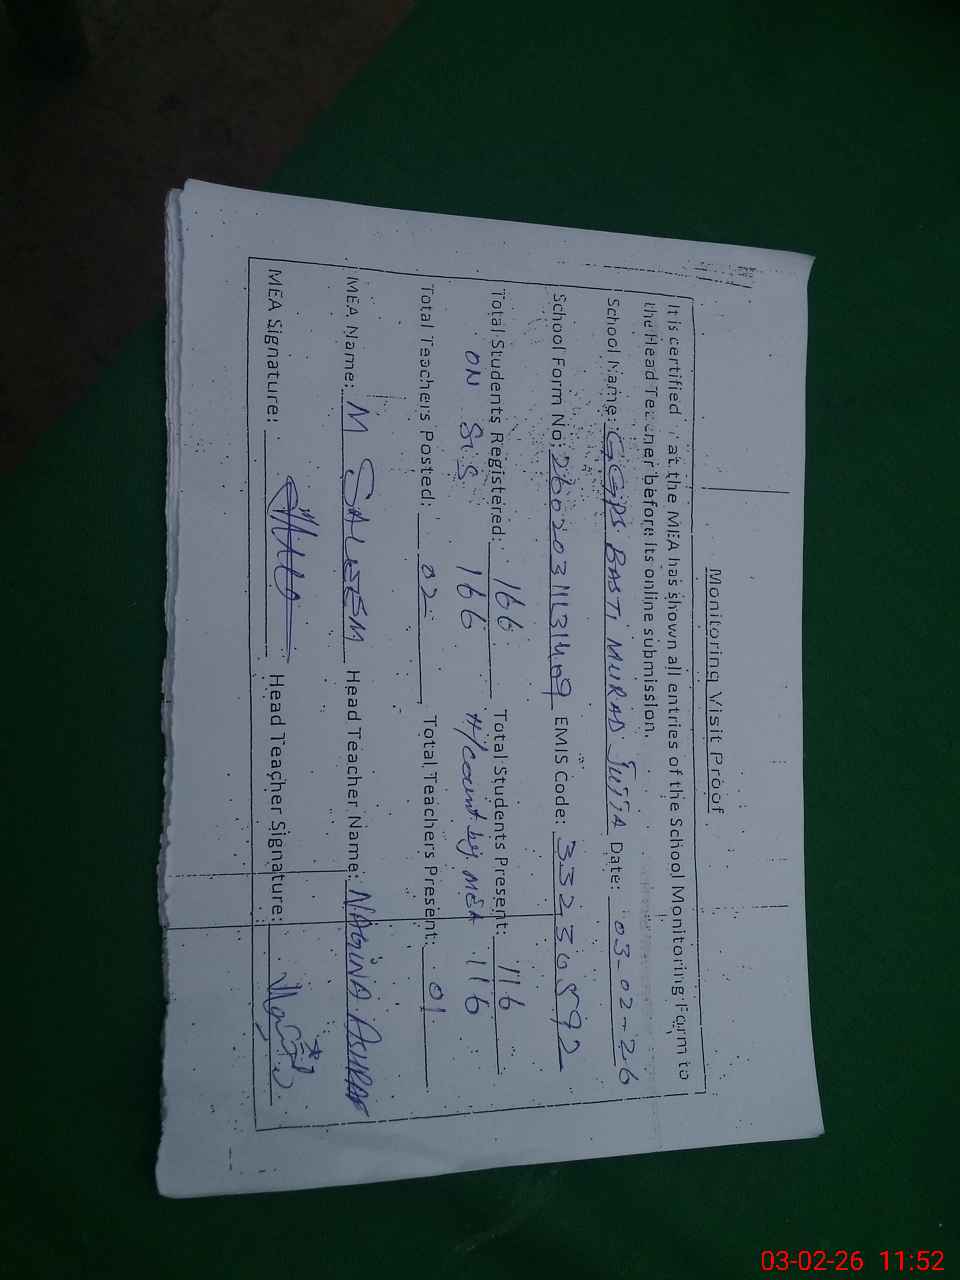 Monitoring Visit Proof
It is certified that the MEA has shown all entries of the School Monitoring Form to
the Head Teacher before its online submission.
School Name: GGPS. BASTI MURAD JUTTA Date: 03-02-26
School Form No: EMIS Code: 33230592
Total Students Registered: 166 Total Students Present: 116
ON SIS 166 H/count by MEA 116
Total Teachers Posted: 02 Total Teachers Present: 01
MEA Name: M SALEEM Head Teacher Name: NAGINA ASHRAF
MEA Signature: Head Teacher Signature:
03-02-26 11:52